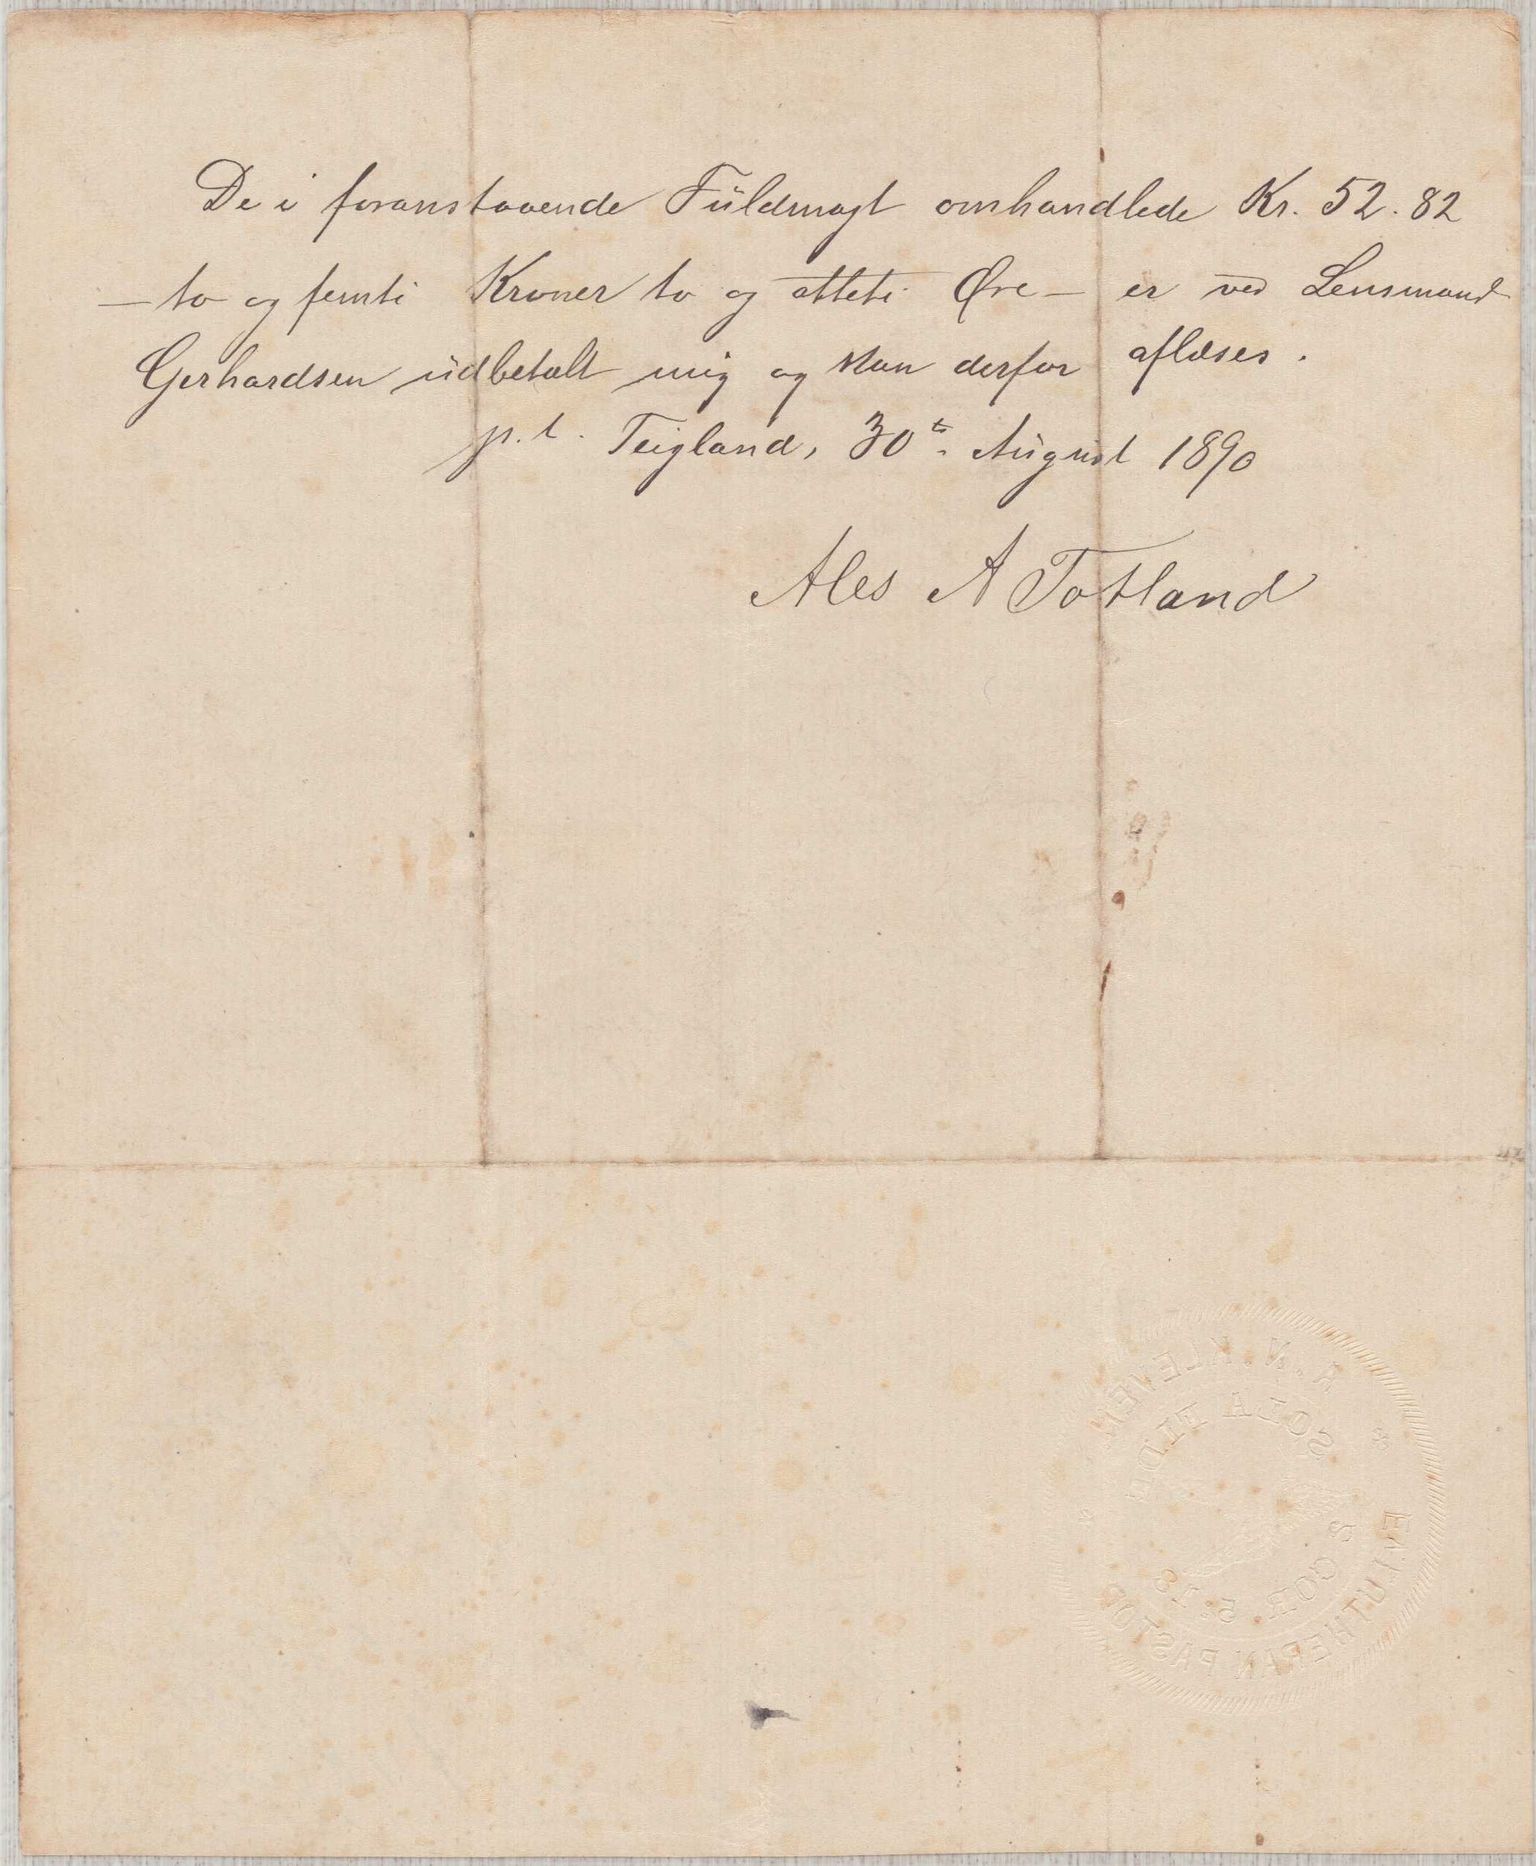 De i foranstaaende Fuldmagt omhandlede Kr. 52.82
— to og femti Kroner to og otteti Øre — er ved Lensmand
Gerhardsen udbetalt mig og kan derfor aflæses.
p. t. Teigland, 30te August 1890
Ales A Totland
K. N. KLEVEN
SOLA FIDE
2 COR 5:18
EV. LUTHERAN PASTOR